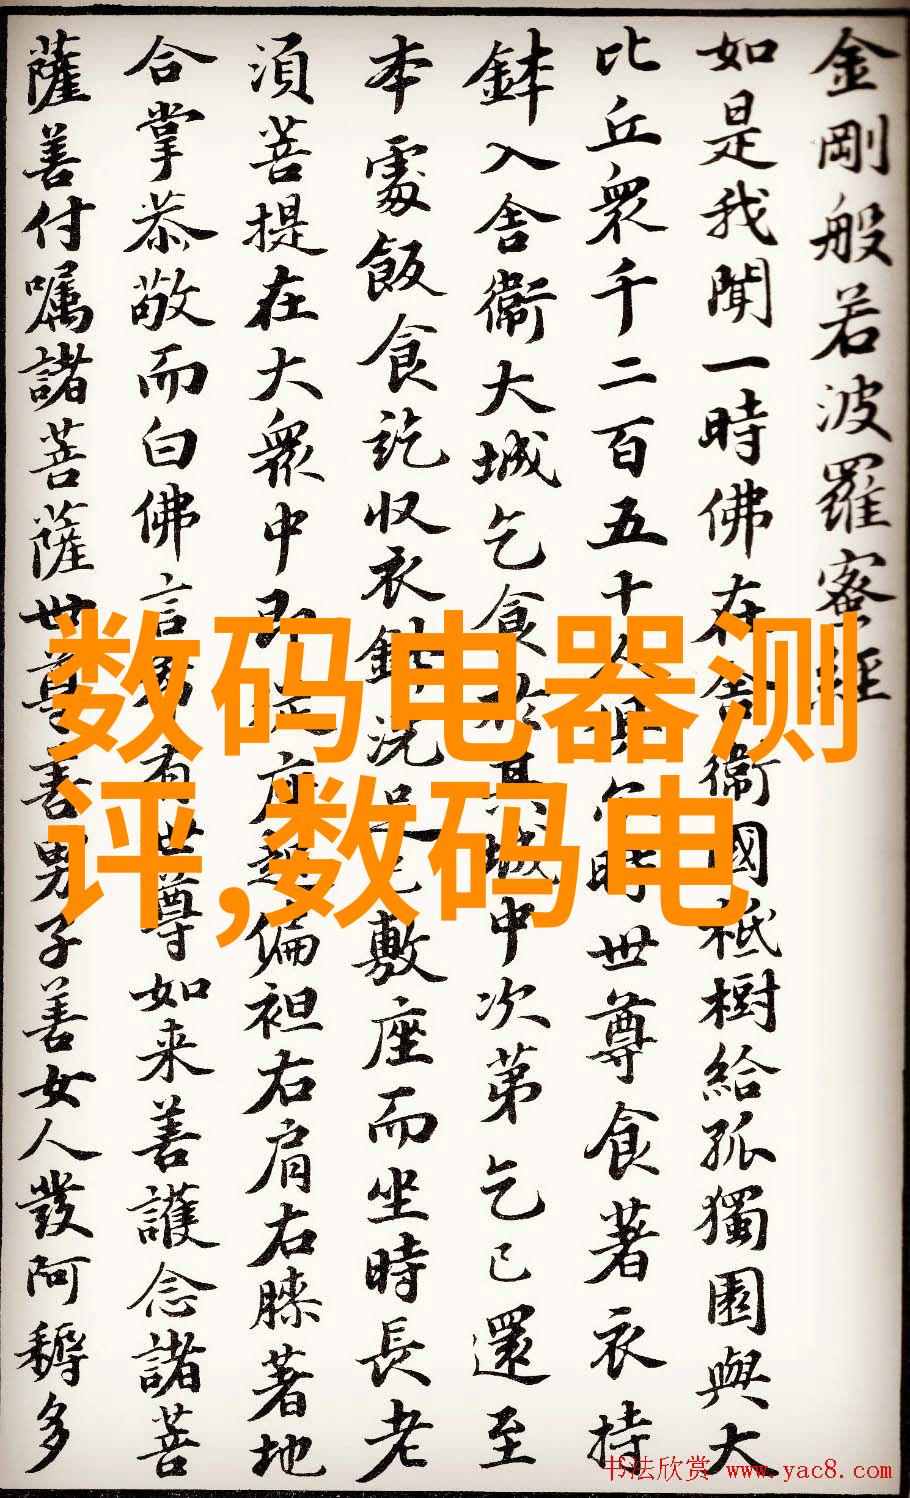 金剛般若波羅蜜經
如是我聞一時佛在舍衞國祇樹給孤獨園與大
比丘衆千二百五十人俱尒時世尊食著衣持
鉢入舍衞大城乞食於其城中次第乞已還至
本處飯食訖收衣鉢洗足已敷座而坐時長老
湏菩提在大衆中即從座起偏袒右肩右膝著地
合掌恭敬而白佛言希有世尊如来善護念諸菩
薩善付嘱諸菩薩世尊善男子善女人發阿耨多
数码电器测
评,数码电
书法欣赏 www.yac8.com